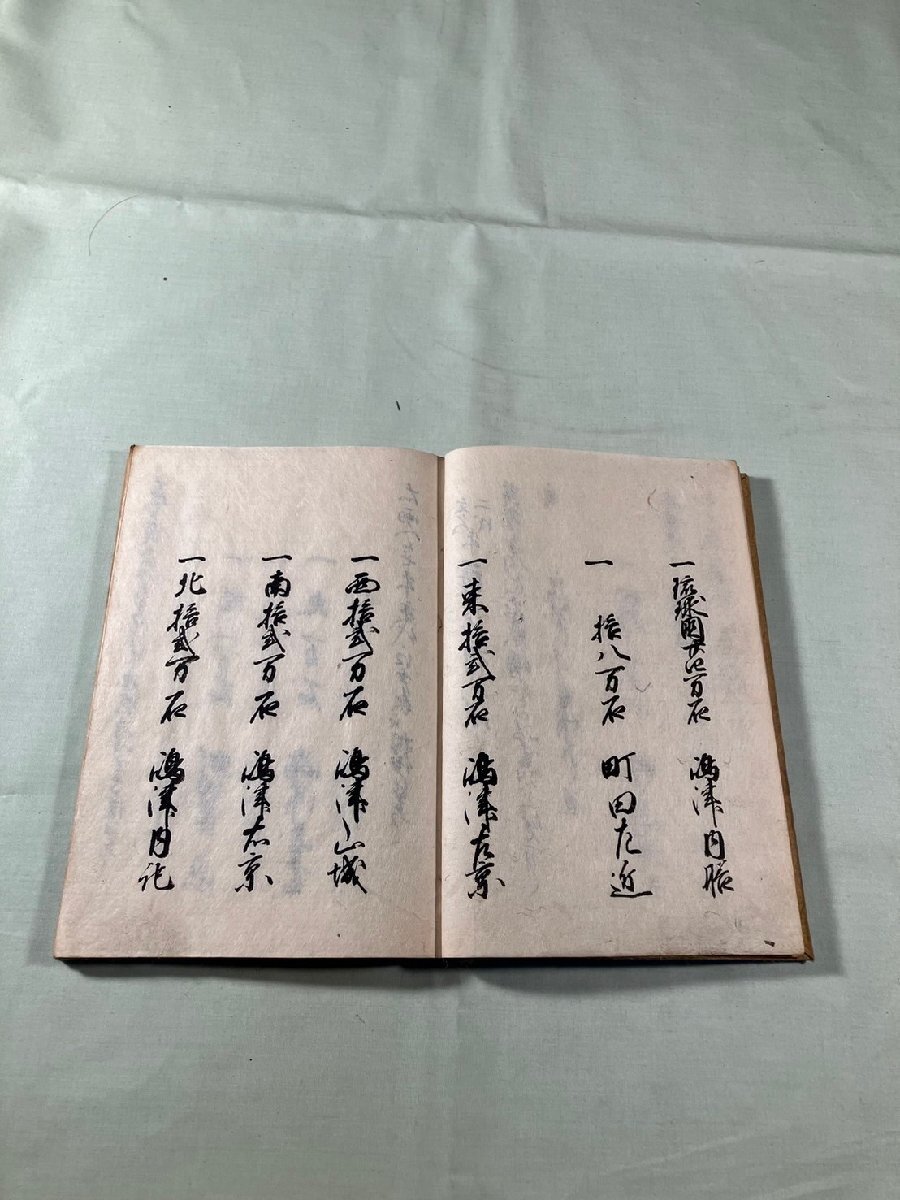 一 琉球国 万石 嶋津内膳
一 拾八万石 町田左近
一 東拾弐万石 嶋津左京
一 西拾弐万石 嶋津山城
一 南拾弐万石 嶋津右京
一 北拾弐万石 嶋津内記